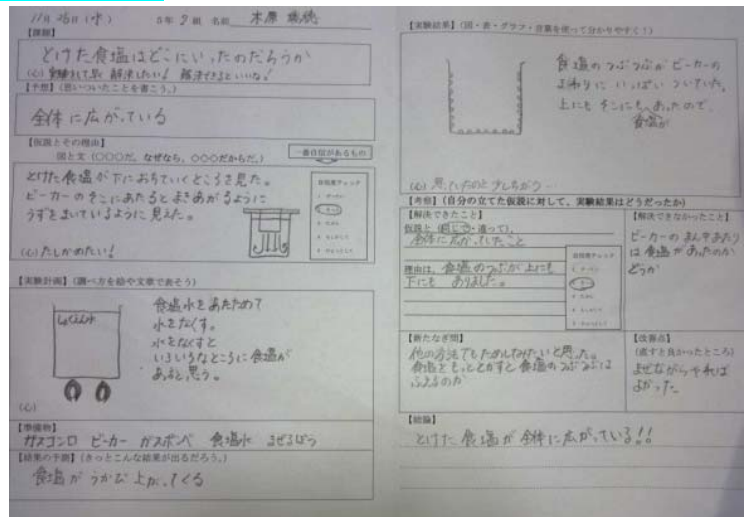 11月26日(水) 5年2組 名前 木原 瑞穂
【課題】
とけた食塩はどこにいったのだろうか
(心) 実験をして早く解決したい! 解決できるといいな!
【予想】(思いついたことを書こう。)
全体に広がっている
【仮説とその理由】
図と文(〇〇〇だ。なぜなら、〇〇〇だからだ。)
一番自信があるもの
とけた食塩が下におちていくところを見た。
ビーカーのそこにあたるとまきあがるように
うずをまいているように見えた。
(心) たしかめたい!
自信度チェック
【実験計画】(調べ方を絵や文章で表そう)
しょくえん水
食塩水をあたためて
水をなくす。
水をなくすと
いろいろなところに食塩が
あると思う。
(心)
【準備物】
ガスコンロ ビーカー ガスボンベ 食塩水 まぜるぼう
【結果の予測】(きっとこんな結果が出るだろう。)
食塩がうかび上がってくる
【実験結果】(図・表・グラフ・言葉を使って分かりやすく!)
食塩のつぶつぶがビーカーの
まわりにいっぱいついていた。
上にもそこにも食塩があったので、
(心) 思ってたのと少しちがう…
【考察】(自分の立てた仮説に対して、実験結果はどうだったか)
【解決できたこと】
仮説と(同じで・違って)、
全体に広がっていたこと
理由は、食塩のつぶが上にも
下にもありました。
自信度チェック
【解決できなかったこと】
ビーカーのまん中あたり
は食塩があったのか
どうか
【新たなぎ問】
他の方法でもためしてみたいと思った。
食塩をもっととかすと食塩のつぶつぶは
ふえるのか
【改善点】
(直すと良かったところ)
まぜながらやれば
よかった
【結論】
とけた食塩が全体に広がっている!!